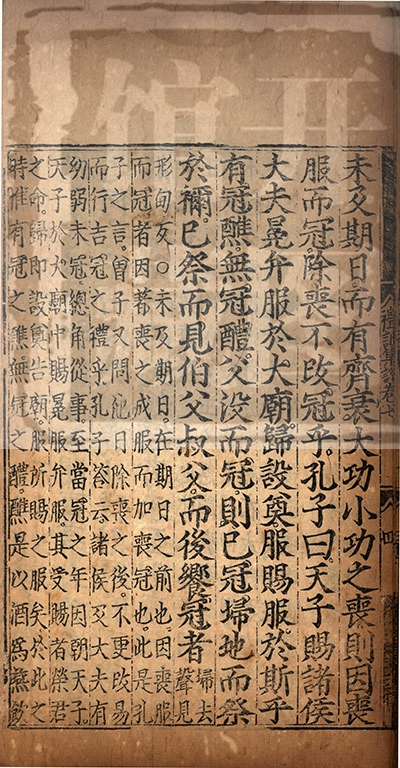 未及期日。而有齊衰大功小功之喪。則因喪
服而冠。除喪不改冠乎。孔子曰。天子賜諸侯
大夫冕弁服於大廟。歸設奠。服賜服於斯乎
有冠醮。無冠醴。父没而冠。則已冠。埽地而祭
於禰。已祭而見伯父叔父。而後饗冠者埽去聲見
形甸反○未及期日。在期日之前也。因喪服
而冠者。因著喪之成服而加喪冠也。此是孔
子之言。曾子又問。他日除喪之後。不更改易
而行吉冠之禮乎。孔子答云。諸侯及大夫有
幼弱未冠。總角從事。至當冠之年。因朝天子。
天子於大廟中賜冕服弁服。其受賜者榮君
之命。歸即設奠告廟。服所賜之服矣。於此之
時惟有冠之醮。無冠之醴。醮是以酒為燕飲